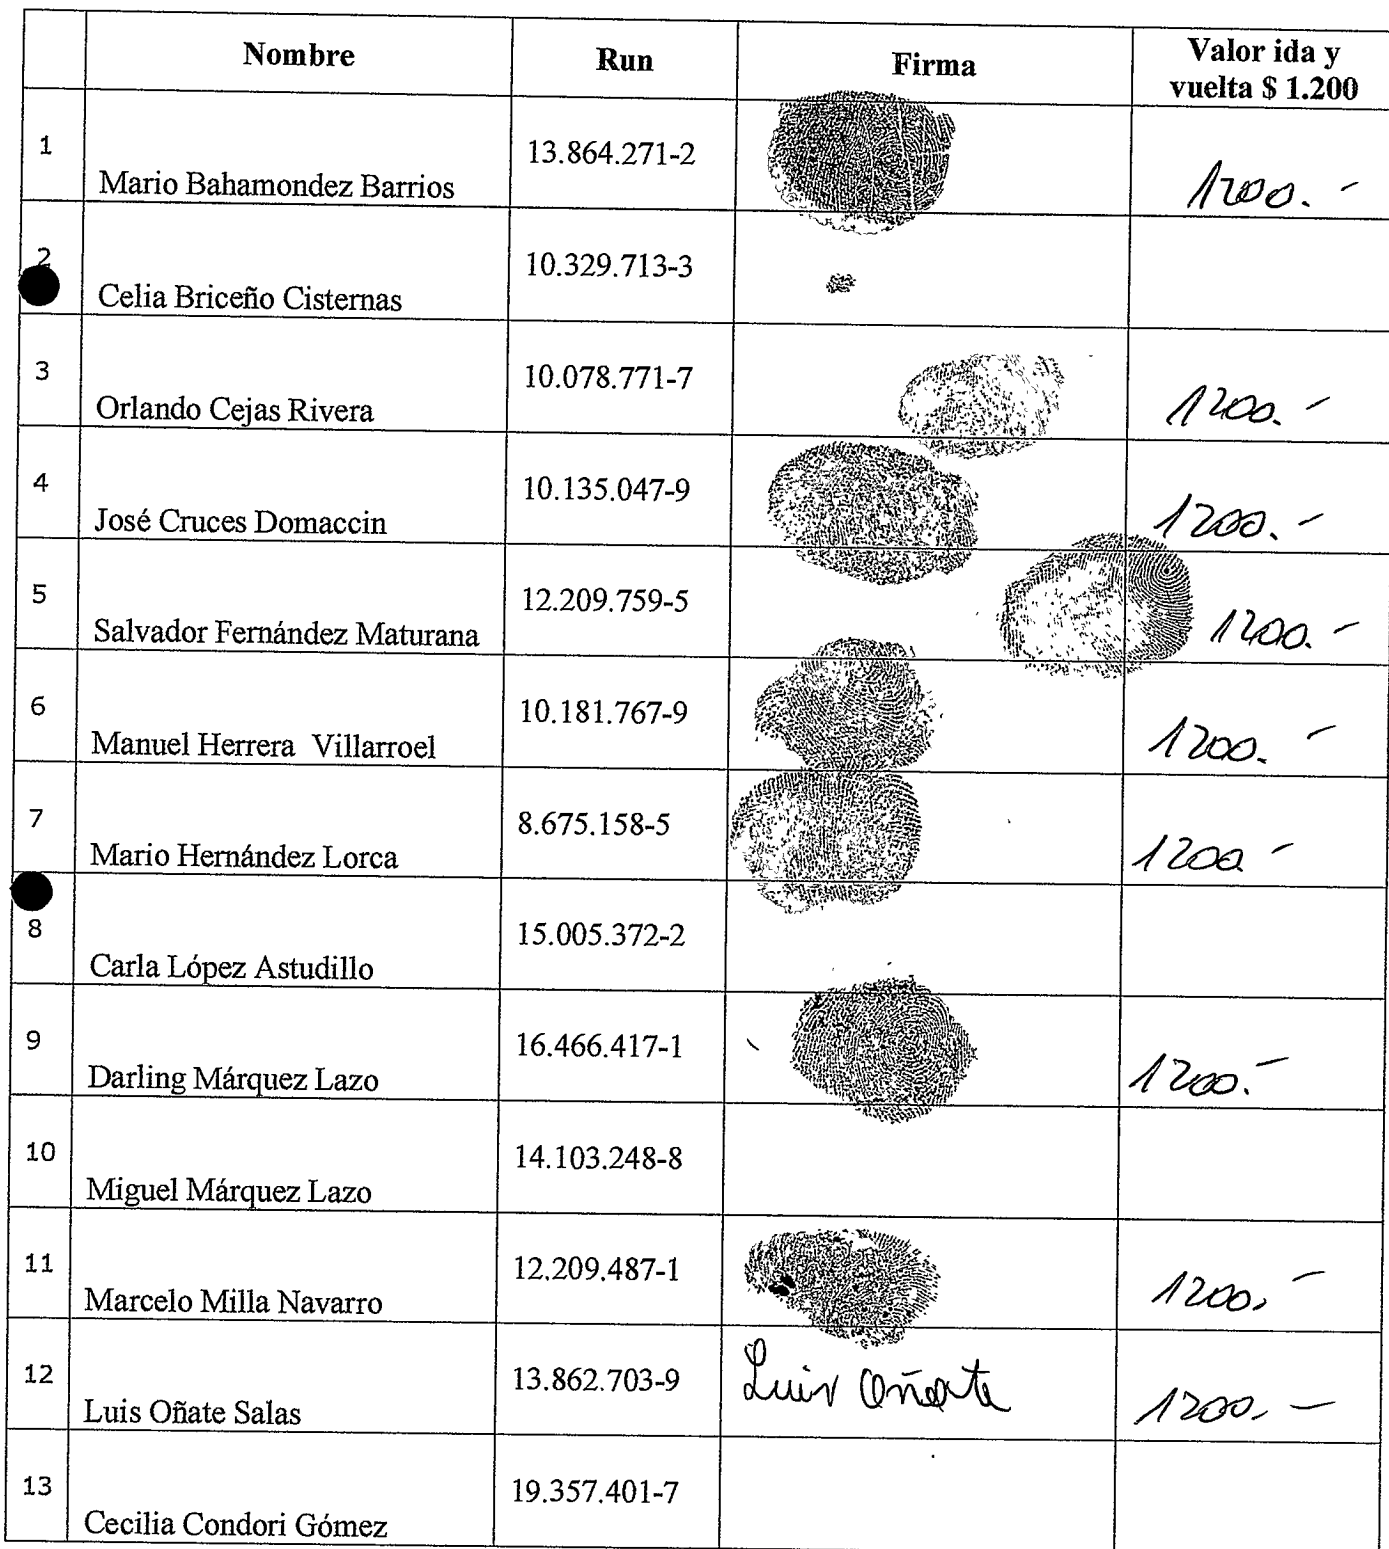 Nombre Run Firma Valor ida y
vuelta $ 1.200
1 Mario Bahamondez Barrios 13.864.271-2 1200.-
2 Celia Briceño Cisternas 10.329.713-3
3 Orlando Cejas Rivera 10.078.771-7 1200.-
4 José Cruces Domaccin 10.135.047-9 1200.-
5 Salvador Fernández Maturana 12.209.759-5 1200.-
6 Manuel Herrera Villarroel 10.181.767-9 1200.-
7 Mario Hernández Lorca 8.675.158-5 1200-
8 Carla López Astudillo 15.005.372-2
9 Darling Márquez Lazo 16.466.417-1 1200.-
10 Miguel Márquez Lazo 14.103.248-8
11 Marcelo Milla Navarro 12.209.487-1 1200.-
12 Luis Oñate Salas 13.862.703-9 Luis Oñate 1200.-
13 Cecilia Condori Gómez 19.357.401-7